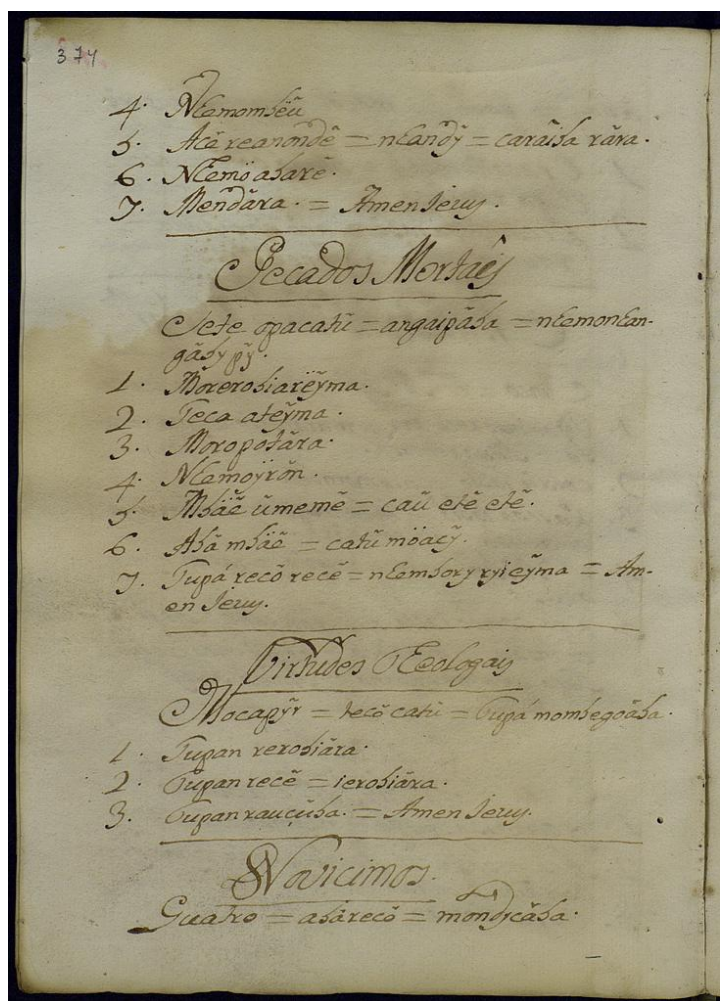 374
4. Ñemombëú
5. Acã reanondê = nẽandỹ = caraîba rára.
6. Ñemöabarê.
7. Mendára. = Amen Jesus.
Pecados Mortaes
Sete opacatú = angaipába = nẽmonẽan-
gáby pỹ.
1. Morerobiarëỹma.
2. Teca ateỹma.
3. Moropotára.
4. Ñemoỹrõn.
5. Mbäê úmemê = caú etê etê.
6. Abá mbäê = catú möacỹ.
7. Tupá recô recê = nẽembory ryieỹma = Am-
en Jesus.
Virtudes Teologais
Moçapỹr = tecô catú = Tupá mombegoába.
1. Tupan rerobiára.
2. Tupan recê = ierobiára.
3. Tupan rauçúba. = Amen Jesus.
Novicimos.
Quatro = abárecô = mondycába.